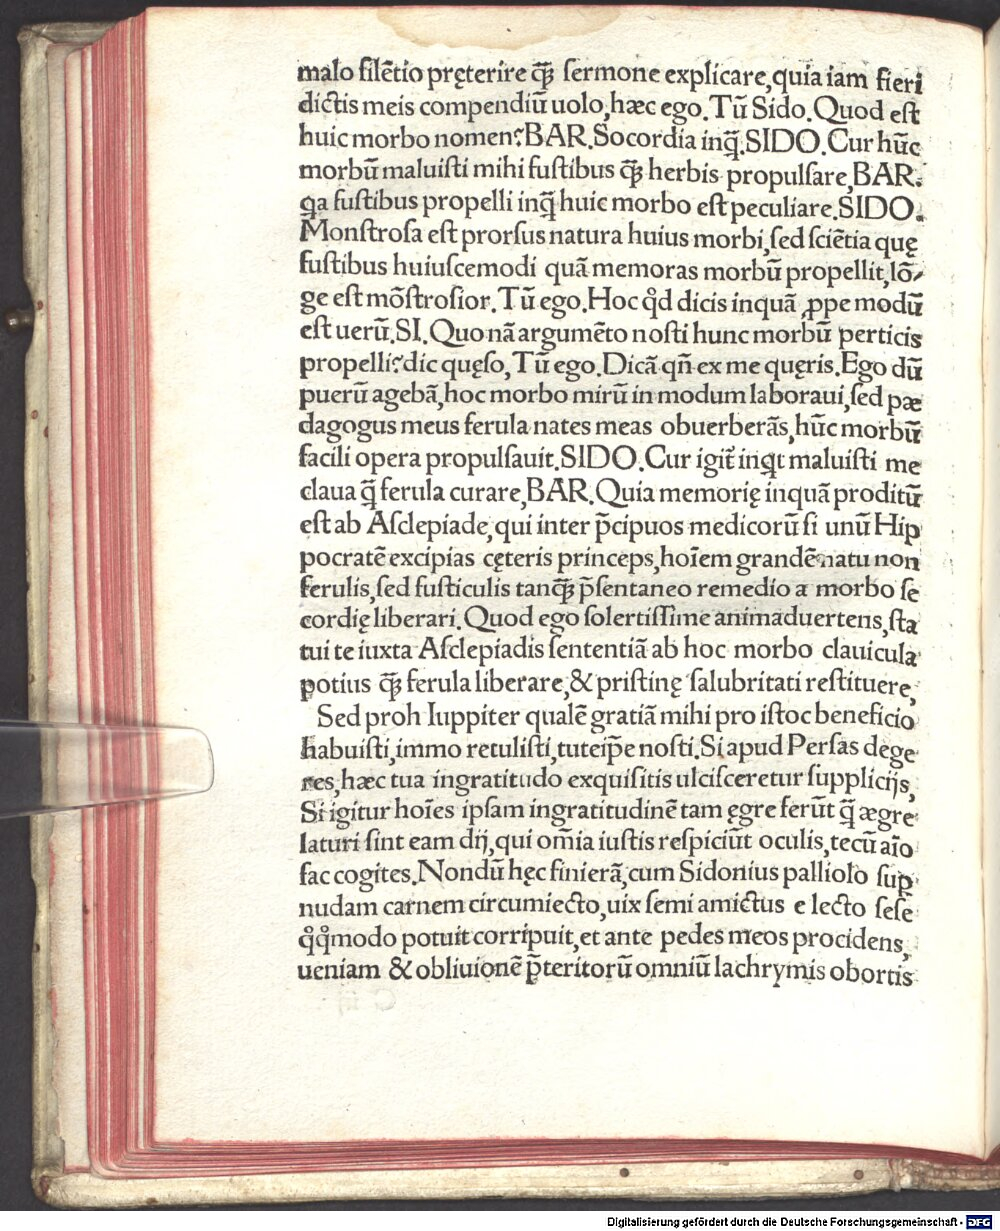 malo silẽtio pręterire q̃ȝ sermone explicare,quia iam fieri
dictis meis compendiũ uolo,hæc ego.Tũ Sido.Quod est
huic morbo nomen?BAR.Socordia inq̃.SIDO.Cur hũc
morbũ maluisti mihi fustibus q̃ȝ herbis propulsare,BAR.
ꝗa fustibus propelli inq̃ huic morbo est peculiare.SIDO.
Monstrosa est prorsus natura huius morbi,sed sciẽtia quę
fustibus huiuscemodi quã memoras morbũ propellit,lõ⸗
ge est mõstrosior.Tũ ego.Hoc qd̓ dicis inquã ꝓpe modũ
est uerũ.SI.Quo nã argumẽto nosti hunc morbũ perticis
propelli?dic quęso,Tũ ego.Dicã qñ ex me quęris.Ego dũ
puerũ agebã,hoc morbo mirũ in modum laboraui,sed pæ
dagogus meus ferula nates meas obuerberãs,hũc morbũ
facili opera propulsauit.SIDO.Cur igit̃ inꝗt maluisti me
claua q̃ ferula curare,BAR.Quia memorię inquã proditũ
est ab Asclepiade,qui inter p̃cipuos medicorũ si unũ Hip
pocratẽ excipias cęteris princeps,hoĩem grandẽ natu non
ferulis,sed fusticulis tanq̃ȝ p̃sentaneo remedio a morbo se
cordię liberari.Quod ego solertissime animaduertens,sta
tui te iuxta Asclepiadis sententiã ab hoc morbo clauicula
potius q̃ȝ ferula liberare,& pristinę salubritati restituere,
Sed proh Iuppiter qualẽ gratiã mihi pro istoc beneficio
habuisti,immo retulisti,tuteip̃e nosti.Si apud Persas dege
res,hæc tua ingratitudo exquisitis ulcisceretur supplicijs,
Si igitur hoĩes ipsam ingratitudinẽ tam ęgre ferũt q̃ ægre
laturi sint eam dij,qui om̃ia iustis respiciũt oculis,tecũ aĩo
fac cogites.Nondũ hęc finierã,cum Sidonius palliolo sup̱
nudam carnem circumiecto,uix semi amictus e lecto sese
q̊q̊modo potuit corripuit,et ante pedes meos procidens,
ueniam & obliuionẽ p̃teritorũ omniũ lachrymis obortis
Digitalisierung gefördert durch die Deutsche Forschungsgemeinschaft - DFG